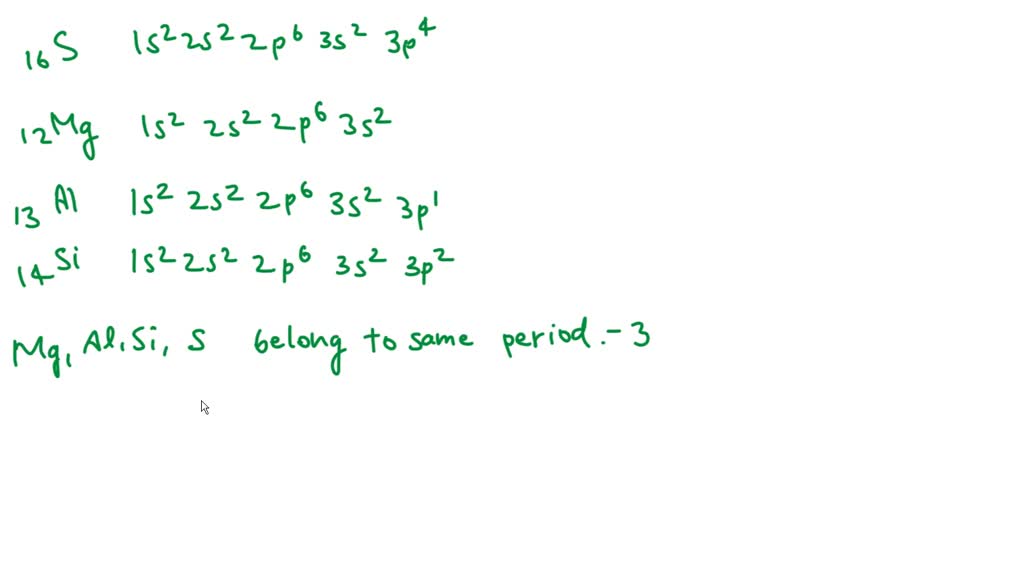 16S 1s² 2s² 2p⁶ 3s² 3p⁴
12Mg 1s² 2s² 2p⁶ 3s²
13Al 1s² 2s² 2p⁶ 3s² 3p¹
14Si 1s² 2s² 2p⁶ 3s² 3p²
Mg, Al, Si, S belong to same period.- 3